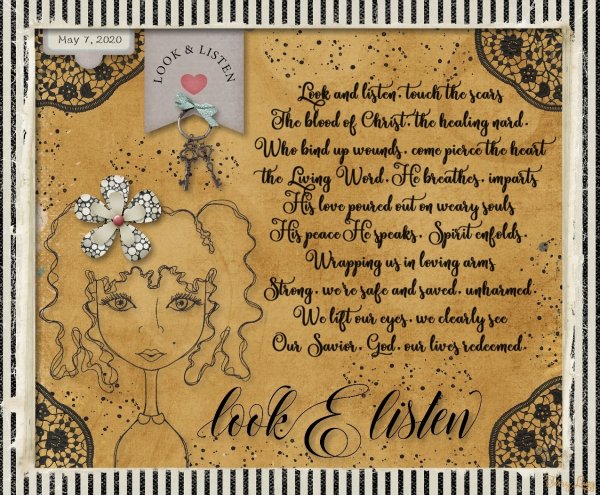 May 7, 2020
LOOK & LISTEN
Look and listen, touch the scars
The blood of Christ, the healing nard.
Who bind up wounds, come pierce the heart
the Living Word, He breathes, imparts
His love poured out on weary souls
His peace He speaks, Spirit enfolds.
Wrapping us in loving arms
Strong, we're safe and saved, unharmed.
We lift our eyes, we clearly see
Our Savior, God, our lives redeemed.
look & listen